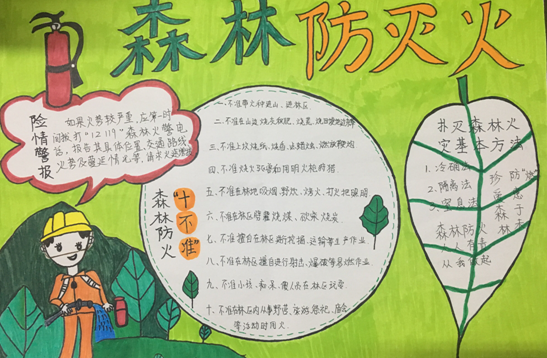 森林防灭火
险情警报
如果火势较严重,应第一时
间拨打"12119"森林火警电
话,报告其具体位置、交通路线
火势及蔓延情况等,请求火速增援
森林防火
"十不准"
一、不准带火种进山、进林区
二、不准在山边烧灰积肥、烧荒、烧田埂
三、不准上坟烧纸、烧香、点蜡烛、
四、不准烧火驱兽和用明火枪狩猎.
五、不准在林地吸烟、野炊、烤火、打火把照明
六、不准在林区擅烧炭.
七、不准擅自在林区进行挖掘、运输等生产作业
八、不准在林区擅自进行射击、爆破等易燃作业
九、不准小孩、痴呆、在林区玩火
十、不准在林区内从事野营、旅游、祭祀、庙会
等活动时用火.
扑灭森林火
灾基本方法
1.冷确法
2.隔离法
3.窒息法
森林防火
人人有责
从我做起